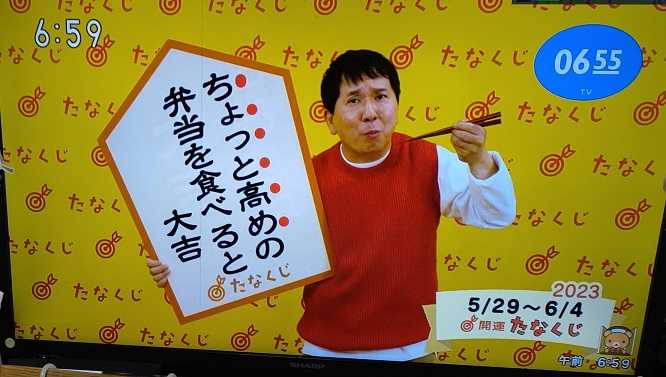 6:59
0655
TV
ちょっと高めの
弁当を食べると
大吉
たなくじ
2023
5/29～6/4
開運たなくじ
午前 6:59
SHARP
たなくじ
たなくじ
たなくじ
たなくじ
たなくじ
たなくじ